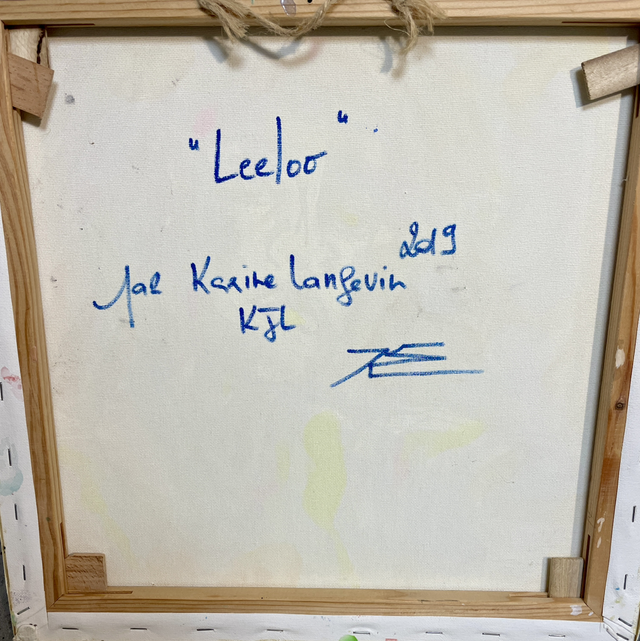 "Leeloo"
2019
par Karine Langevin
KJL